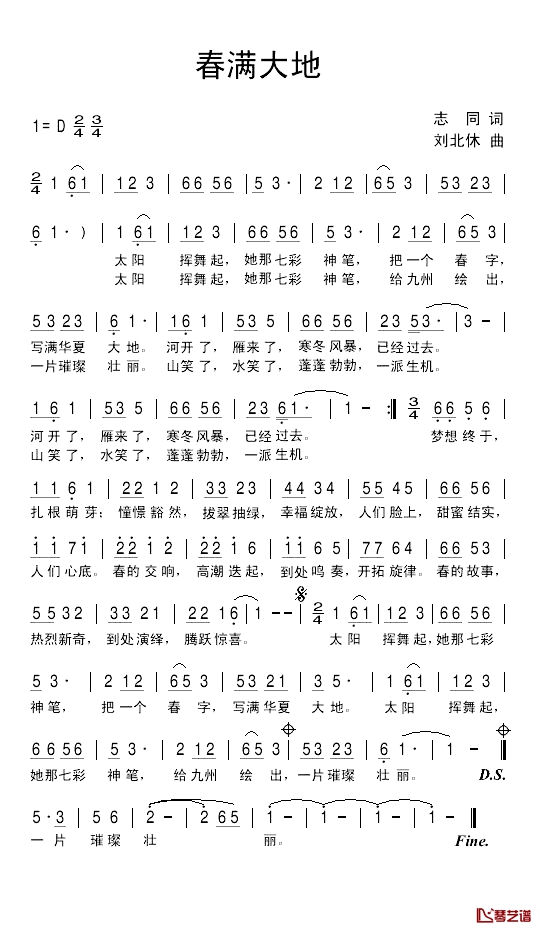 春满大地
1= D 2/4 3/4
志 同 词
刘北休 曲
2/4 1 61 | 12 3 | 66 56 | 5 3· | 2 12 | 65 3 | 53 23 |
6 1· ) | 1 61 | 12 3 | 66 56 | 53· | 2 12 | 65 3 |
太阳 挥舞起，她那七彩 神笔， 把一个 春字，
太阳 挥舞起，她那七彩 神笔， 给九州 绘出，
53 23 | 6 1· | 16 1 | 53 5 | 66 56 | 23 53· | 3 - |
写满华夏 大地。河开了，雁来了，寒冬风暴，已经过去。
一片璀璨 壮丽。山笑了，水笑了，蓬蓬勃勃，一派生机。
16 1 | 53 5 | 66 56 | 23 61· | 1 - :| 3/4 66 5 6 |
河开了，雁来了，寒冬风暴，已经过去。 梦想终于，
山笑了，水笑了，蓬蓬勃勃，一派生机。
11 6 1 | 22 1 2 | 33 23 | 44 34 | 55 45 | 66 56 |
扎根萌芽；憧憬豁然，拔翠抽绿，幸福绽放，人们脸上，甜蜜结实，
11 71 | 22 12 | 22 12 | 11 61 | 77 64 | 66 53 |
人们心底。春的交响，高潮迭起，到处鸣奏，开拓旋律。春的故事，
55 32 | 33 21 | 22 16 | 1 - - | 2/4 1 61 | 12 3 | 66 56 |
热烈新奇，到处演绎，腾跃惊喜。 太阳 挥舞起，她那七彩
5 3· | 2 12 | 65 3 | 53 21 | 3 5· | 1 61 | 12 3 |
神笔， 把一个 春字，写满华夏 大地。 太阳 挥舞起，
66 56 | 53· | 2 12 | 65 3 | 53 23 | 6 1· | 1 - ||
她那七彩 神笔， 给九州 绘出，一片璀璨 壮丽。 D.S.
5·3 | 5 6 | 2 - | 2 65 | 1 - | 1 - | 1 - | 1 - ||
一片 璀璨 壮 丽。 Fine.
琴艺谱